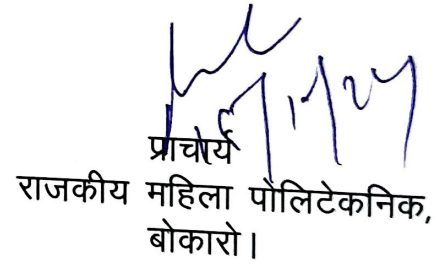 प्राचार्य
राजकीय महिला पोलिटेकनिक,
बोकारो।